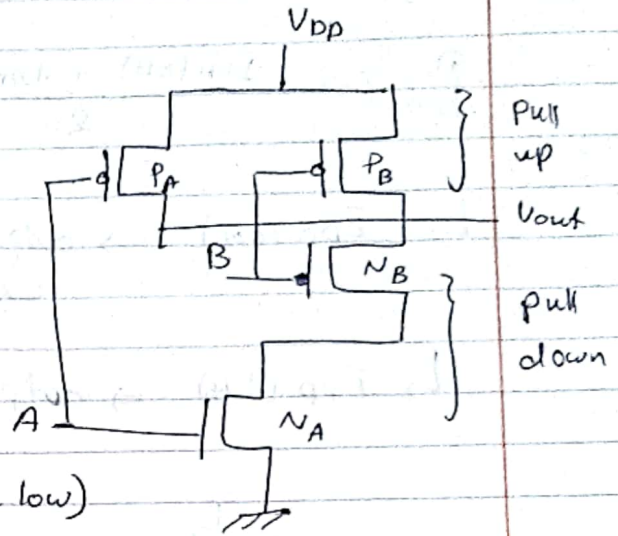 VDD
Pull
up
PA
PB
Vout
B
NB
Pull
down
A
NA
low)